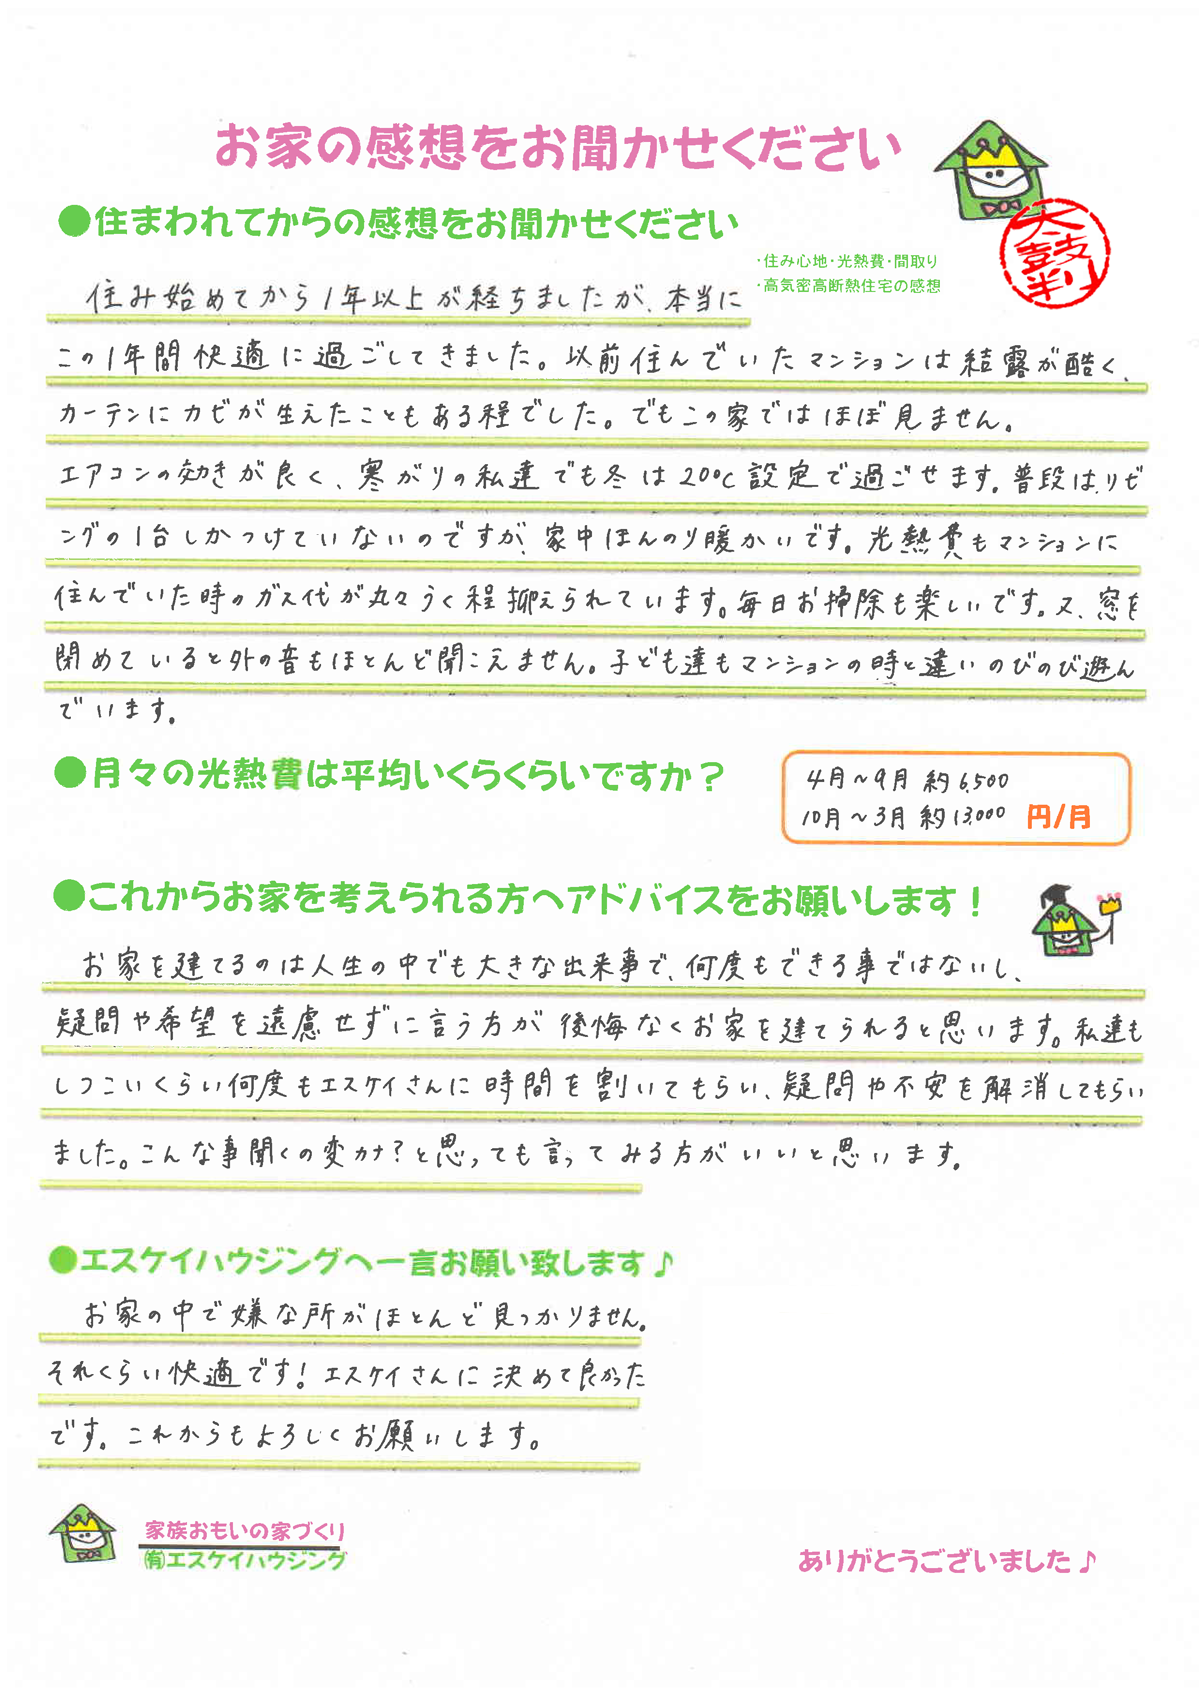 お家の感想をお聞かせください
●住まわれてからの感想をお聞かせください
・住み心地・光熱費・間取り
・高気密高断熱住宅の感想
太鼓判
住み始めてから1年以上が経ちましたが、本当に
この1年間快適に過ごしてきました。以前住んでいたマンションは結露が酷く、
カーテンにカビが生えたこともある程でした。でもこの家ではほぼ見ません。
エアコンの効きが良く、寒がりの私達でも冬は20℃設定で過ごせます。普段は、リビ
ングの1台しかつけていないのですが、家中ほんのり暖かいです。光熱費もマンションに
住んでいた時のガス代が丸々うく程抑えられています。毎日お掃除も楽しいです。又、窓を
閉めていると外の音もほとんど聞こえません。子ども達もマンションの時と違いのびのび遊ん
でいます。
●月々の光熱費は平均いくらくらいですか？
4月～9月 約6,500
10月～3月 約13,000 円/月
●これからお家を考えられる方へアドバイスをお願いします！
お家を建てるのは人生の中でも大きな出来事で、何度もできる事ではないし、
疑問や希望を遠慮せずに言う方が後悔なくお家を建てられると思います。私達も
しつこいくらい何度もエスケイさんに時間を割いてもらい、疑問や不安を解消してもらい
ました。こんな事聞くの変カナ？と思っても言ってみる方がいいと思います。
●エスケイハウジングへ一言お願い致します♪
お家の中で嫌な所がほとんど見つかりません。
それくらい快適です！エスケイさんに決めて良かった
です。これからもよろしくお願いします。
家族おもいの家づくり
㈲エスケイハウジング
ありがとうございました♪